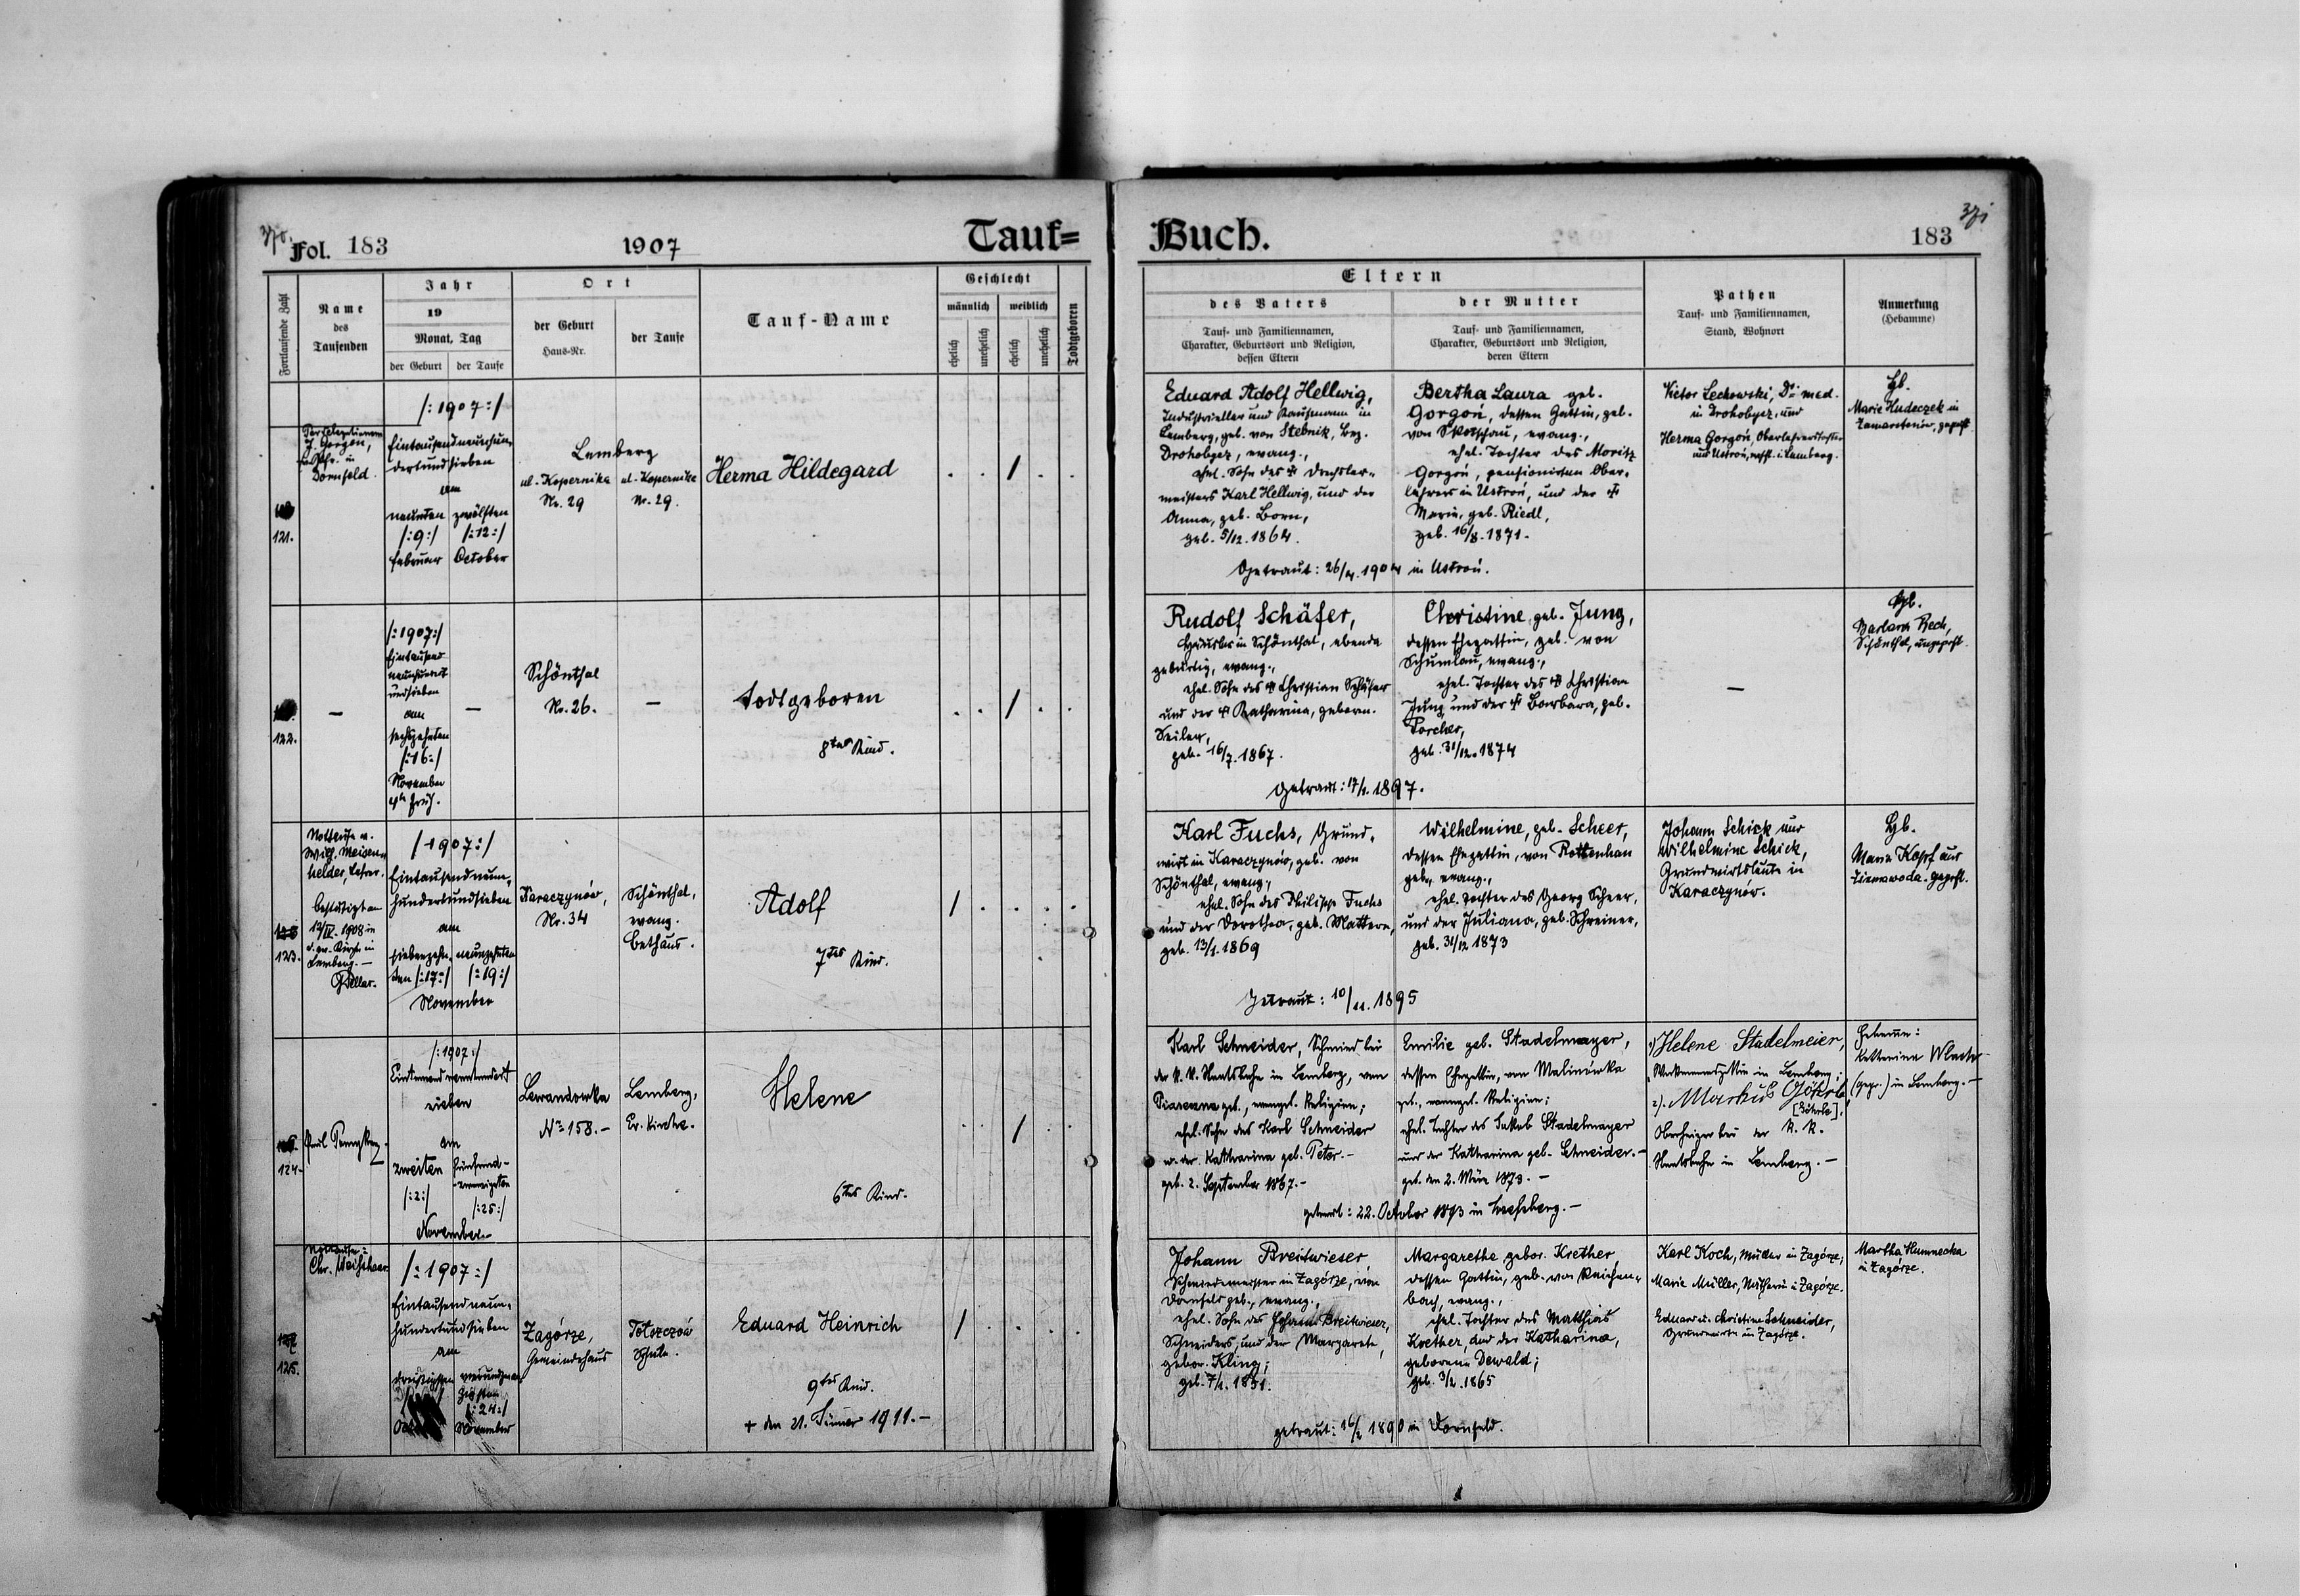 Fol. 183
1907
Tauf=
Buch.
183
371
Fortlaufende Zahl
Name
des
Taufenden
Jahr
19
Monat, Tag
der Geburt
der Taufe
Ort
der Geburt
Haus-Nr.
der Taufe
Tauf-Name
Geschlecht
männlich
weiblich
ehelich
unehelich
ehelich
unehelich
Todtgeboren
Eltern
des Vaters
Tauf- und Familiennamen,
Charakter, Geburtsort und Religion,
dessen Eltern
der Mutter
Tauf- und Familiennamen,
Charakter, Geburtsort und Religion,
deren Eltern
Pathen
Tauf- und Familiennamen,
Stand, Wohnort
Anmerkung
(Hebamme)
121.
J. Gorgon,
Dornfeld
/:1907:/
Eintausendneunhun-
dertundsieben
am
neunten
/:9:/
Februar
zwölften
/:12:/
October
Lemberg
ul. Kopernika
Nr. 29
ul. Kopernika
Nr. 29.
Herma Hildegard
Eduard Adolf Hellwig,
Industrieller und Kaufmann in
Lemberg, geb. von Stebnik, Bez.
Drohobycz, evang.,
ehel. Sohn des † Drechsler-
meisters Karl Hellwig, und der
Anna, geb. Born,
geb. 5/12. 1864.
Bertha Laura geb.
Gorgoń, dessen Gattin, geb.
von Skotschau, evang.,
ehel. Tochter des Moritz
Gorgoń, pensionirten Ober-
lehrers in Ustroń, und der †
Marie, geb. Riedl,
geb. 16/8. 1871.
Getraut: 26/4. 1904 in Ustroń.
Victor Lechowski, Dr. med.
in Drohobycz, und
Herma Gorgoń, Oberlehrerstochter
aus Ustroń, in Lemberg.
Hb.
Marie Hudeczek in
Zamarstenów, geprft.
122.
—
/:1907:/
Eintausend
neunhundert
undsieben
am
sechszehnten
/:16:/
November
4h früh.
—
Schönthal
Nr. 26.
—
todtgeboren
8tes Kind.
Rudolf Schäfer,
Häusler in Schönthal, ebenda
gebürtig, evang.,
ehel. Sohn des † Christian Schäfer
und der † Katharina, geboren.
Seiler,
geb. 16/7. 1867.
Christine, geb. Jung,
dessen Ehegattin, geb. von
Schumlau, evang.,
ehel. Tochter des † Christian
Jung und der † Barbara, geb.
Porcher,
geb. 31/12. 1874
getraut: 17/1. 1897.
—
Hb.
Barbara Rech,
Schönthal, ungeprft.
123.
Nottaufe v.
Wilh. Meisen-
helder, Lehrer.
bestätigt am
12/IV. 1908 in
d. ev. Kirche in
Lemberg. —
/1907:/
Eintausendneun-
hundertundsieben
am
siebenzehn-
ten /:17:/
neunzehnten
/:19:/
November
Karaczynów,
Nr. 34
Schönthal,
evang.
Bethaus.
Adolf
7tes Kind.
Karl Fuchs, Grund-
wirt in Karaczynów, geb. von
Schönthal, evang.,
ehel. Sohn des Philipp Fuchs
und der Dorothea, geb. Mattern,
geb. 13/1. 1869
Wilhelmine, geb. Scheer,
dessen Ehegattin, von Rottenhan
geb., evang.,
ehel. Tochter des Georg Scheer,
und der Juliana, geb. Schreiner,
geb. 31/12 1873
Getraut: 10/11. 1895
Johann Schick und
Wilhelmine Schick,
Grundwirtsleute in
Karaczynów.
Hb.
Maria Kopf aus
Ziemawoda. geprft.
124.
/:1907:/
Eintausendneunhundert
sieben
am
zweiten
/:2:/
fünfund-
zwanzigsten
/:25:/
November
Lewandowka
No 158. —
Lemberg,
Ev. Kirche.
Helene
6tes Kind.
Karl Schneider, Schmied bei
der K. K. Staatsbahn in Lemberg, von
geb., evangel. Religion;
ehel. Sohn des Karl Schneider
u. der Katharina geb. Peter. —
geb. 2. September 1867. —
Emilie geb. Stadelmayer,
dessen Ehegattin, von Malinówka
geb., evangel. Religion;
ehel. Tochter des Jakob Stadelmayer
und der Katharina geb. Schneider. —
geb. den 2. März 1873. —
getraut: 22. October 1893 in
1) Helene Stadelmeier,
in Lemberg;
2). Markus Göhrle
[Göhrle],
Oberheizer bei der K. K.
Staatsbahn in Lemberg. —
Hebamme:
Katharina
(gepr.) in Lemberg. —
125.
Nottaufe:
Chr.
/:1907:/
Eintausendneun-
hundertundsieben
am
dreißigsten
vierundzwan-
zigsten
/:24:/
November
Zagórze,
Gemeindehaus
Schule.
Eduard Heinrich
9tes Kind.
+ den 21. Jänner 1911. —
Johann Breitwieser,
Schmiedemeister in Zagórze, von
Dornfeld geb., evang.
ehel. Sohn des Johann Breitwieser,
Schneiders, und der Margarete,
gebor. Kling;
geb. 7/1. 1851.
Margaretha gebor. Krether
dessen Gattin, geb. von Reichen-
bach, evang.,
ehel. Tochter des Matthias
Krether, und der Katharina,
geborene Dewald;
geb. 3/2. 1865
getraut: 16/2 1890 in Dornfeld.
Karl Koch, Müller in Zagórze;
Marie Müller, in Zagórze.
Eduard u. Christine Schneider,
Grundwirte in Zagórze.
Martha Humnecka
in Zagórze.